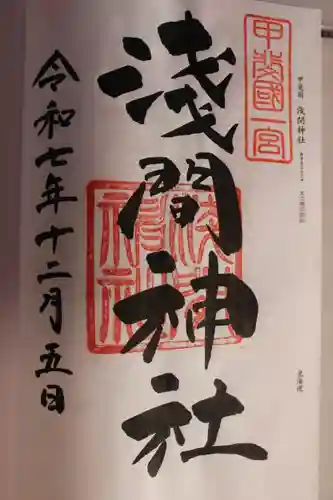 甲斐國一宮
甲斐國 浅間神社
淺間神社
令和七年十二月五日